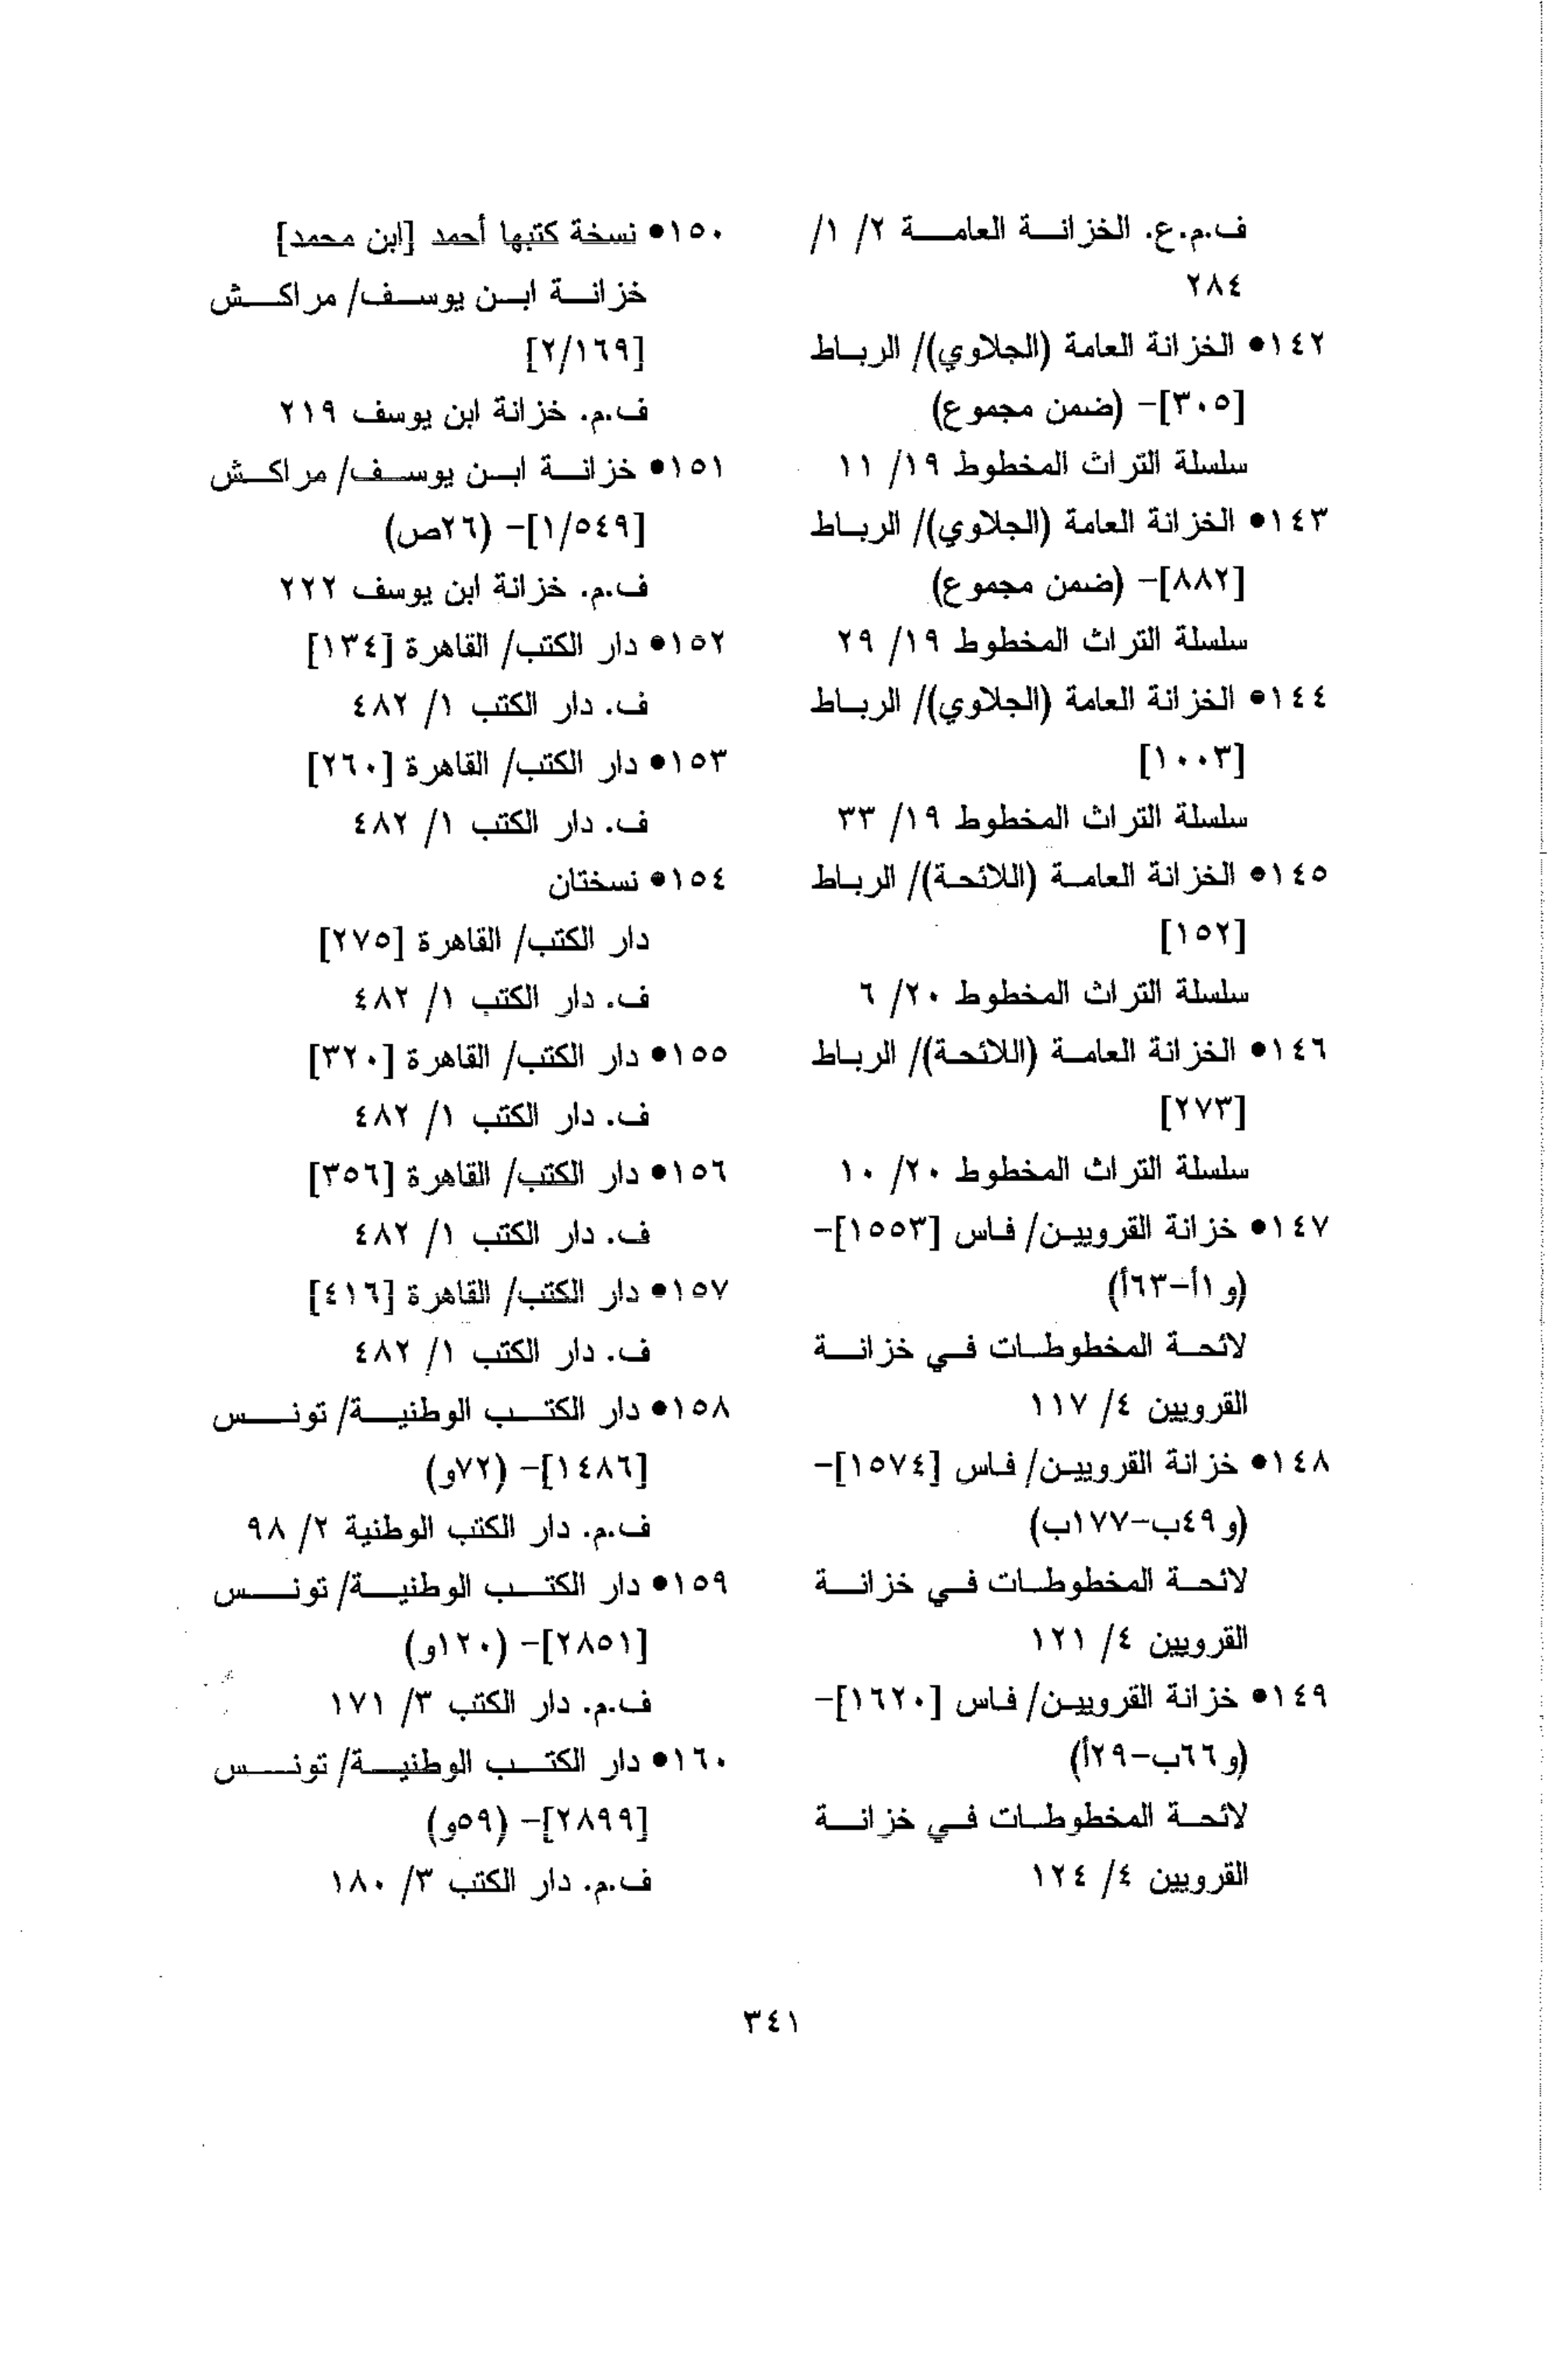 ف.م.ع. الخزانة العامة ٢/ ١/
٢٨٤
١٤٢• الخزانة العامة (الجلاوي)/ الرباط
[٣٠٥]- (ضمن مجموع)
سلسلة التراث المخطوط ١٩/ ١١
١٤٣• الخزانة العامة (الجلاوي)/ الرباط
[٨٨٢]- (ضمن مجموع)
سلسلة التراث المخطوط ١٩/ ٢٩
١٤٤• الخزانة العامة (الجلاوي)/ الرباط
[١٠٠٣]
سلسلة التراث المخطوط ١٩/ ٣٣
١٤٥• الخزانة العامة (اللائحة)/ الرباط
[١٥٢]
سلسلة التراث المخطوط ٢٠/ ٦
١٤٦• الخزانة العامة (اللائحة)/ الرباط
[٢٧٣]
سلسلة التراث المخطوط ٢٠/ ١٠
١٤٧• خزانة القرويين/ فاس [١٥٥٣]-
(و ١أ-٦٣أ)
لائحة المخطوطات في خزانة
القرويين ٤/ ١١٧
١٤٨• خزانة القرويين/ فاس [١٥٧٤]-
(و ٤٩ب-١٧٧ب)
لائحة المخطوطات في خزانة
القرويين ٤/ ١٢١
١٤٩• خزانة القرويين/ فاس [١٦٢٠]-
(و ٦٦ب-٢٩أ)
لائحة المخطوطات في خزانة
القرويين ٤/ ١٢٤
١٥٠• نسخة كتبها أحمد [ابن محمد]
خزانة ابن يوسف/ مراكش
[٢/١٦٩]
ف.م. خزانة ابن يوسف ٢١٩
١٥١• خزانة ابن يوسف/ مراكش
[١/٥٤٩]- (٢٦ص)
ف.م. خزانة ابن يوسف ٢٢٢
١٥٢• دار الكتب/ القاهرة [١٣٤]
ف. دار الكتب ١/ ٤٨٢
١٥٣• دار الكتب/ القاهرة [٢٦٠]
ف. دار الكتب ١/ ٤٨٢
١٥٤• نسختان
دار الكتب/ القاهرة [٢٧٥]
ف. دار الكتب ١/ ٤٨٢
١٥٥• دار الكتب/ القاهرة [٣٢٠]
ف. دار الكتب ١/ ٤٨٢
١٥٦• دار الكتب/ القاهرة [٣٥٦]
ف. دار الكتب ١/ ٤٨٢
١٥٧• دار الكتب/ القاهرة [٤١٦]
ف. دار الكتب ١/ ٤٨٢
١٥٨• دار الكتب الوطنية/ تونس
[١٤٨٦]- (٧٢و)
ف.م. دار الكتب الوطنية ٢/ ٩٨
١٥٩• دار الكتب الوطنية/ تونس
[٢٨٥١]- (١٢٠و)
ف.م. دار الكتب ٣/ ١٧١
١٦٠• دار الكتب الوطنية/ تونس
[٢٨٩٩]- (٥٩و)
ف.م. دار الكتب ٣/ ١٨٠
٣٤١